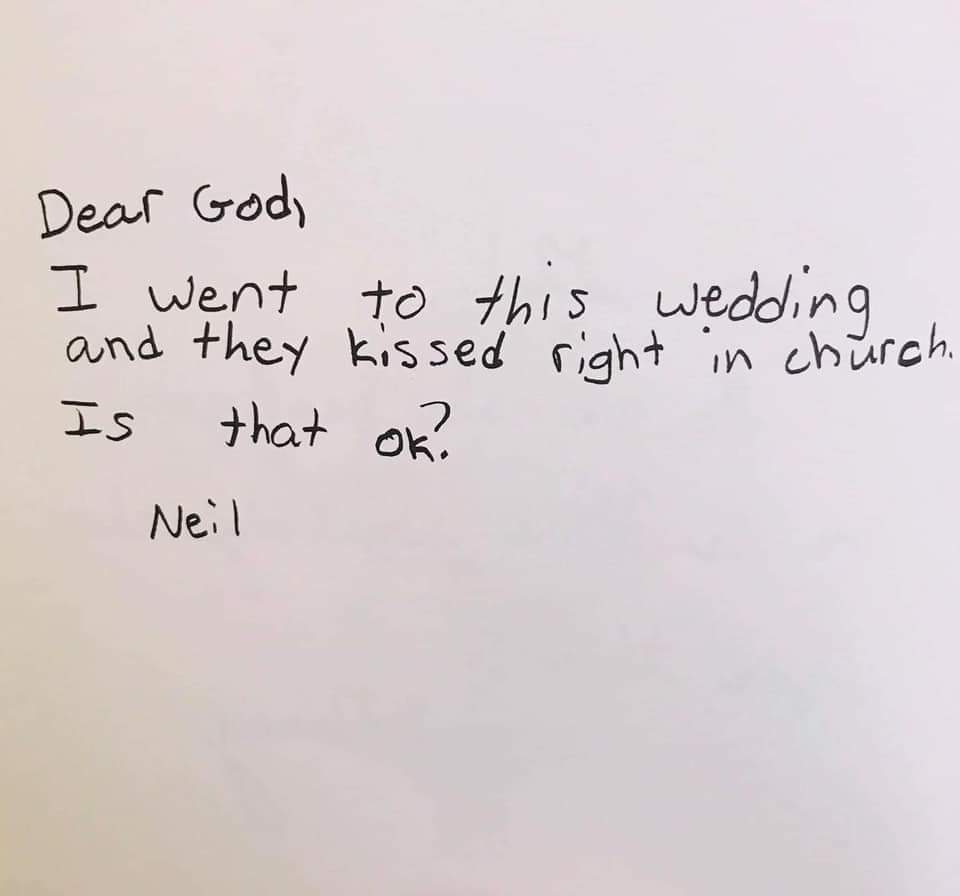 Dear God,
I went to this wedding
and they kissed right in church.
Is that ok?
Neil